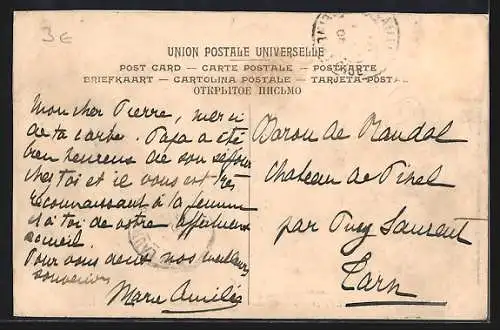 3€
UNION POSTALE UNIVERSELLE
POST CARD — CARTE POSTALE — POSTKARTE
BRIEFKAART — CARTOLINA POSTALE — TARJETA POSTAL
ОТКРЫТОЕ ПИСЬМО
Mon cher Pierre, merci
de ta carte. Papa a été
bien heureux de son séjour
chez toi et il vous est très
reconnaissant à ta femme
et à toi de votre affectueux
accueil.
Pour vous deux nos meilleurs
souvenirs
Marie
Baron de
Chateau de
par Puy Laurent
Tarn